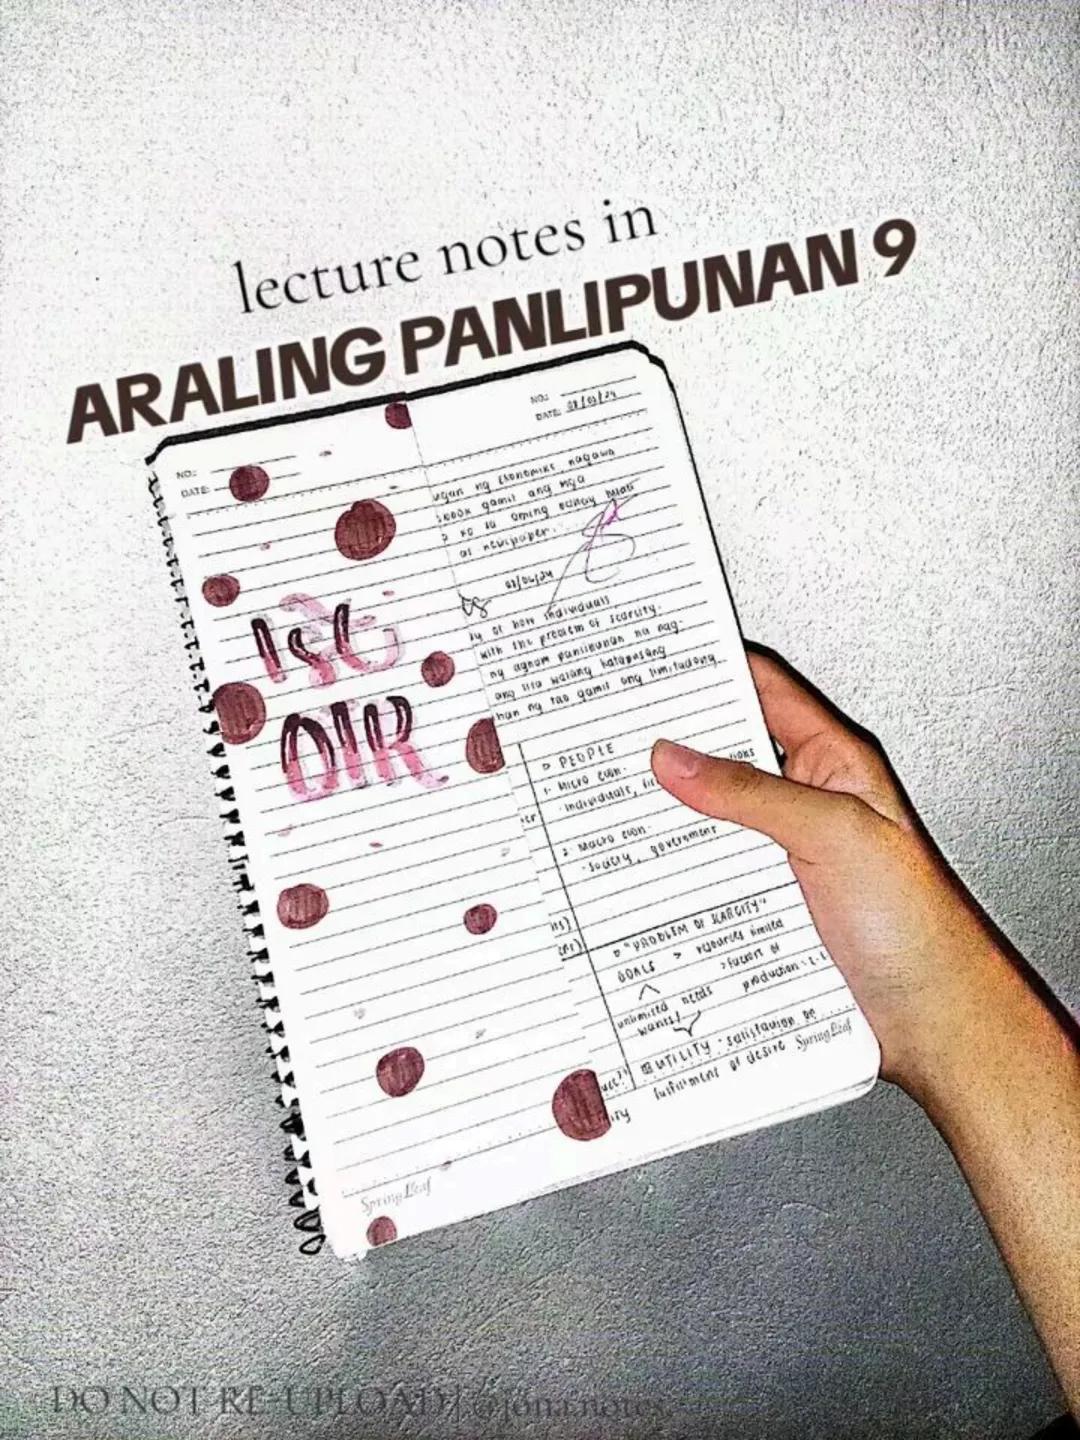 lecture notes in
ARALING PANLIPUNAN 9
NO.:
DATE:
1ST
QTR
SpringLeaf
NO.:
DATE: 08/03/24
ng Ekonomiks, nagawa
gamit ang mga
as newspaper.
08/06/24
of how individuals
with the problem of scarcity.
ng agham panlipunan na nag
ang walang katapusang
ng tao gamit ang limitadong
PEOPLE
1. Micro econ.
individuals,
2. Macro econ.
- society, government
"PROBLEM OF SCARCITY"
GOALS > resources limited
^ > factors of
unlimited needs production
wants!
UTILITY : satisfaction or
fulfillment of desire
SpringLeaf
DO NOT RE-UPLOAD | @jona.notes